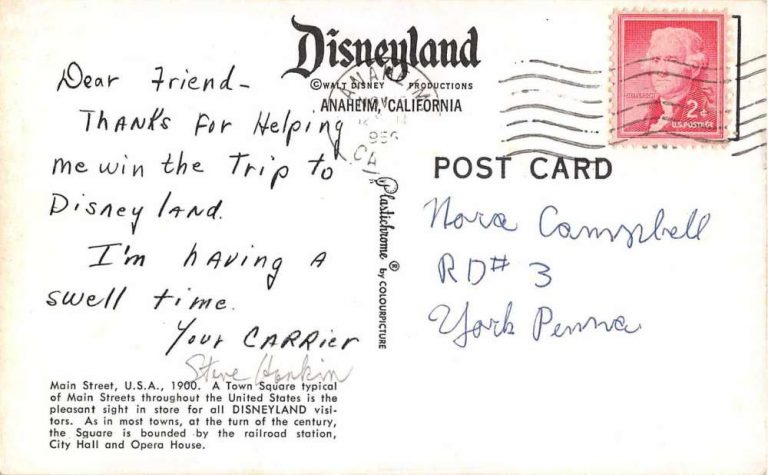 Disneyland
© WALT DISNEY PRODUCTIONS
ANAHEIM, CALIFORNIA
Dear Friend-
THANKS FOR Helping
me win the Trip to
Disney LAND.
I'm HAVING A
swell time.
Your CARRier
Steve
Main Street, U.S.A., 1900. A Town Square typical
of Main Streets throughout the United States is the
pleasant sight in store for all DISNEYLAND visi-
tors. As in most towns, at the turn of the century,
the Square is bounded by the railroad station,
City Hall and Opera House.
Plastichrome ® by COLOURPICTURE
ANAHEIM
2¢
U.S. POSTAGE
POST CARD
Nora Campbell
RD# 3
York Penna